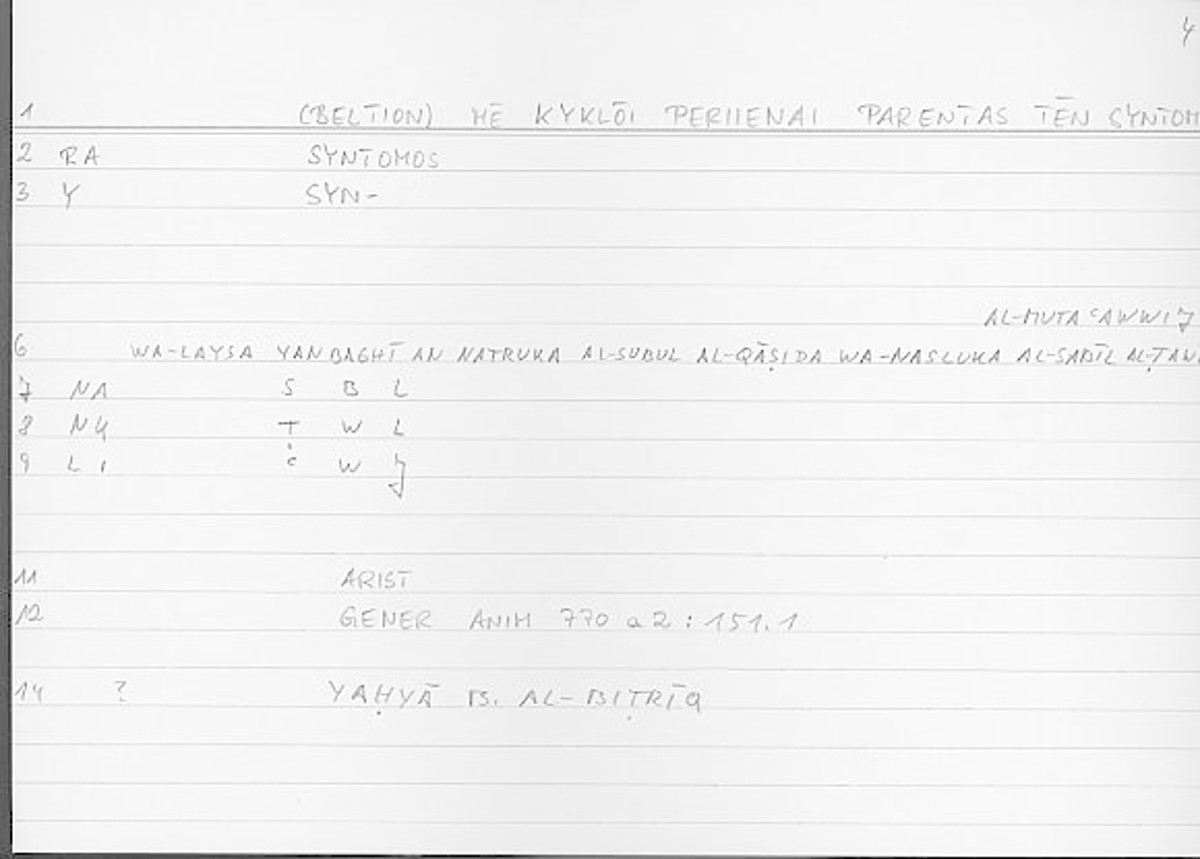 4
1 (BELTION) MĒ KYKLŌI PERIIENAI PARENTAS TĒN SYNTOM
2 RA SYNTOMOS
3 Y SYN-
AL-MUTAʿAWWIJ
6 WA-LAYSA YANBAGHĪ AN NATRUKA AL-SUBUL AL-QĀṢIDA WA-NASLUKA AL-SABĪL AL-ṬAWĪ
7 NA S B L
8 NY Ṭ W L
9 LI ʿ W J
11 ARIST
12 GENER ANIM 770 a 2 : 151.1
14 ? YAḤYĀ B. AL-BIṬRĪQ